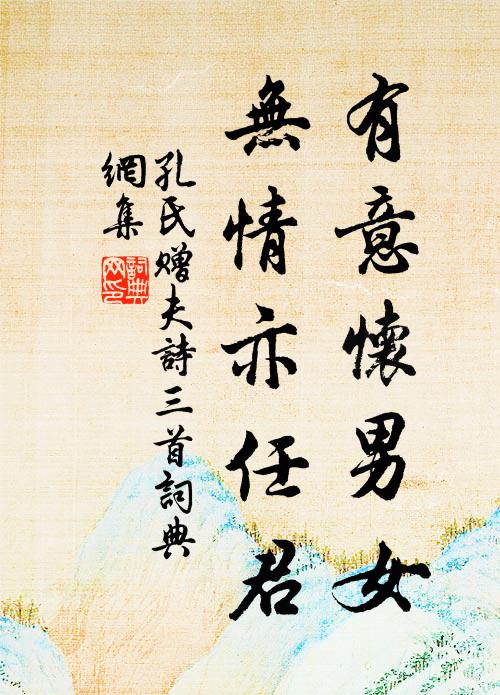 有意懷男女
無情亦任君
孔氏贈夫詩三首詞典
網集
詞典
网印